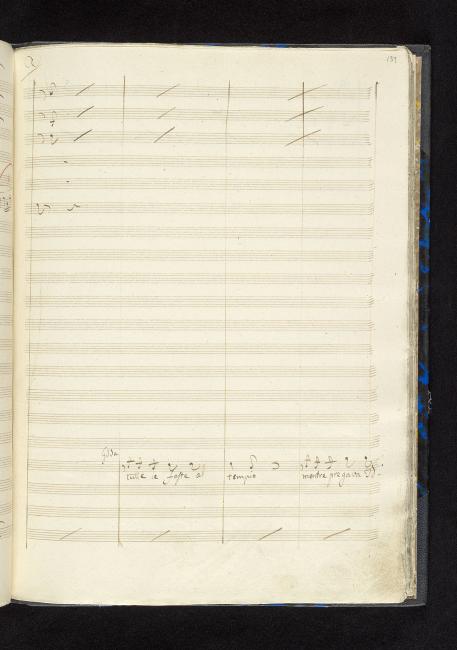 139
Gilda
tutte le feste al
tempio
mentre pregava Id-